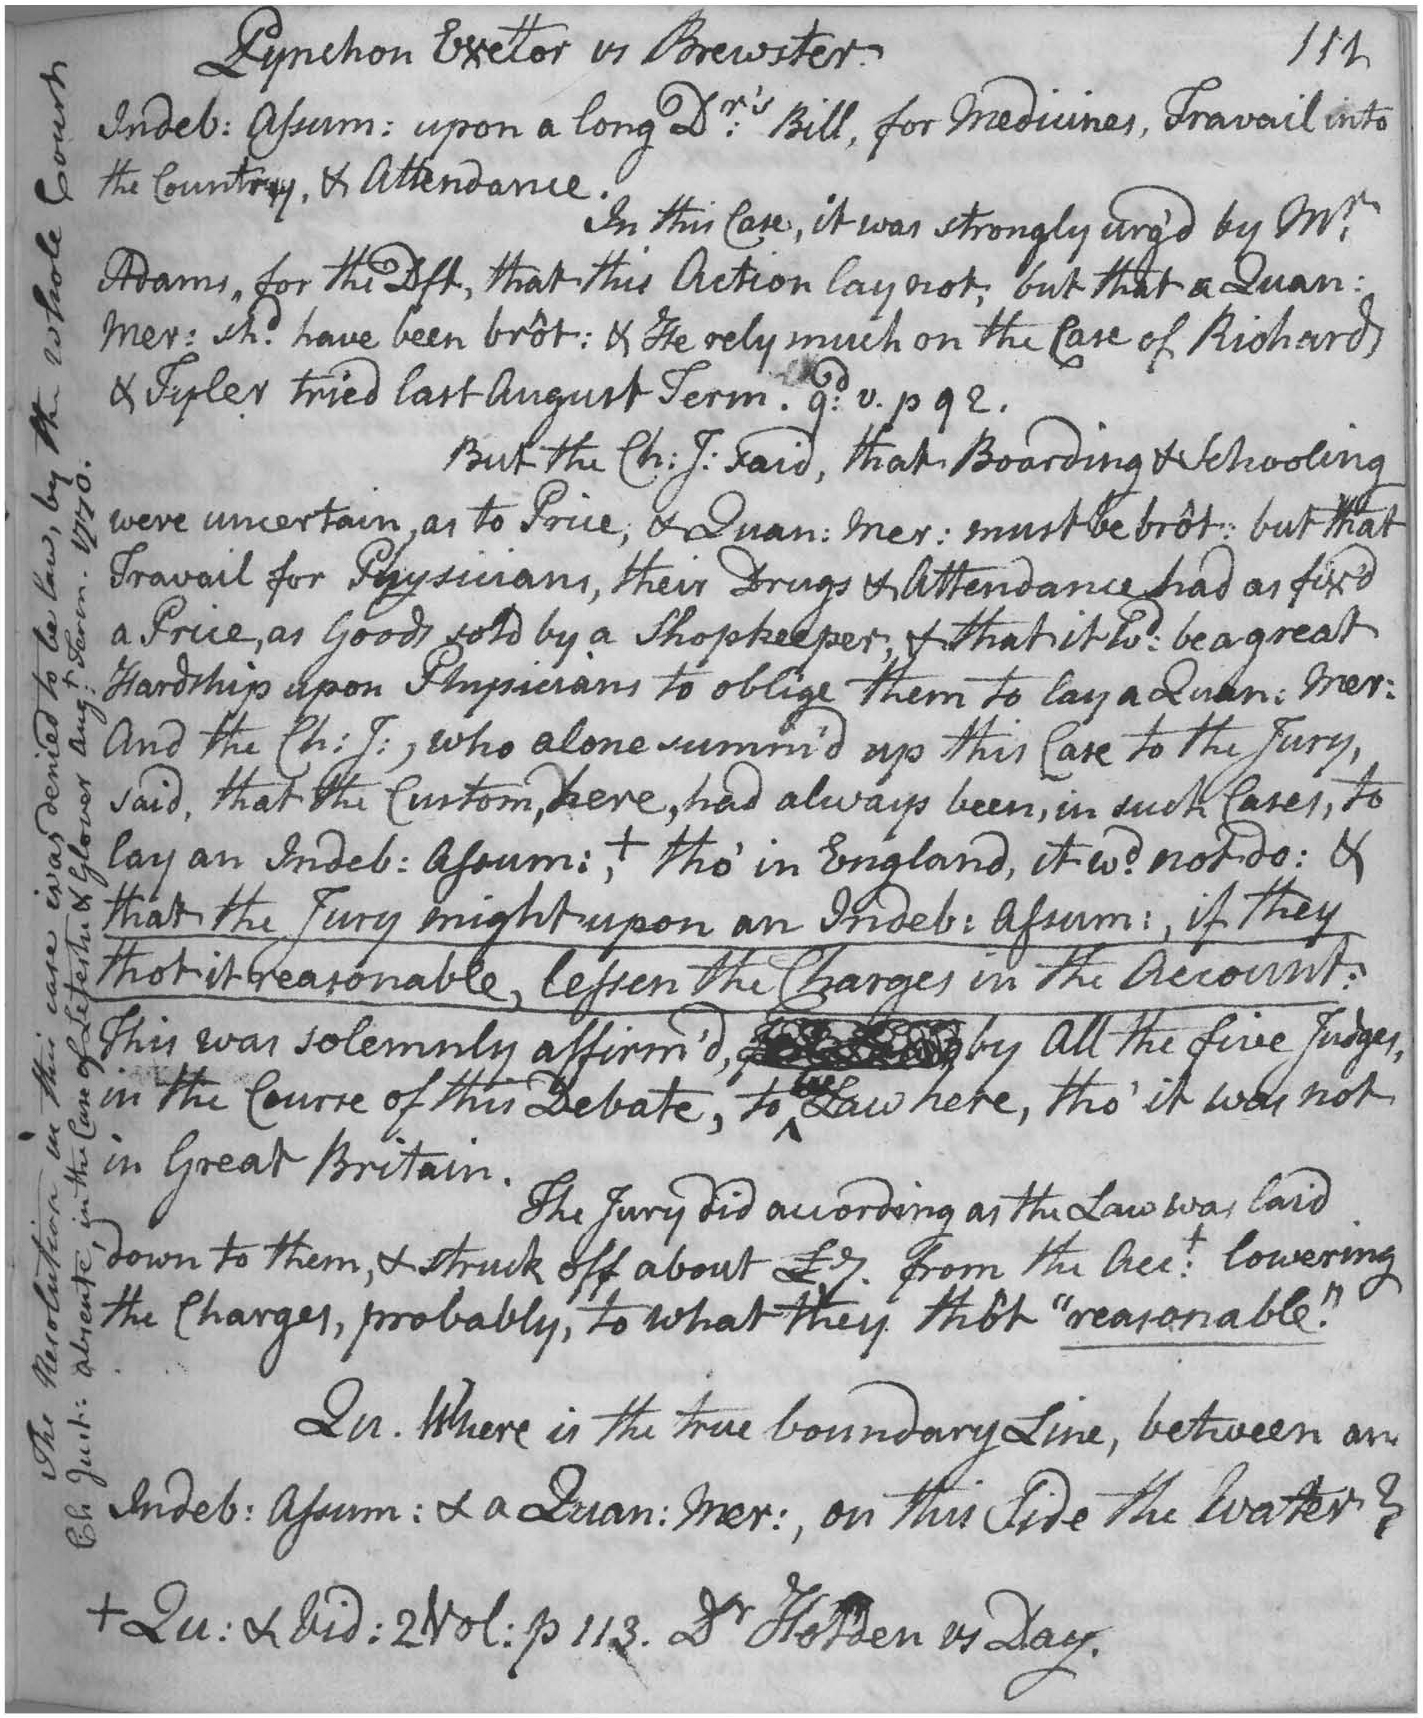 Pynchon Exētor vs Brewster.
112
Indeb: Assum: upon a long Dr:'s Bill, for Medicines, Travail into
the Country, & Attendance.
In this Case, it was strongly urg'd by Mr:
Adams, for the Dft, that this Action lay not, but that a Quan:
Mer: shd: have been brôt: & He rely much on the Case of Richards
& Tyler tried last August Term. qd: v. p 92.
But the Ch: J: said, that Boarding & Schooling
were uncertain, as to Price, & Quan: Mer: must be brôt: but that
Travail for Physicians, their Drugs & Attendance had as fix'd
a Price, as Goods sold by a Shopkeeper, & that it wd: be a great
Hardship upon Physicians to oblige them to lay a Quan: Mer:
And the Ch: J:, who alone summ'd up this Case to the Jury,
said, that the Custom, here, had always been, in such Cases, to
lay an Indeb: Assum:,+ tho' in England, it wd: not do: &
that the Jury might upon an Indeb: Assum:, if they
thot it reasonable, lessen the Charges in the Account:
This was solemnly affirm'd, by All the five Judges,
in the Course of this Debate, to be Law here, tho' it was not
in Great Britain.
The Jury did according as the Law was laid
down to them, & struck off about £7. from the Acct: lowering
the Charges, probably, to what they thôt "reasonable."
Qu. Where is the true boundary Line, between an
Indeb: Assum: & a Quan: Mer:, on this Side the Water?
+ Qu: & Vid: 2 Vol: p 113. Dr Holden vs Day.
The Resolution in this case was denied to be law, by the whole Court
Ch Just: absente, in the Case of & Glover Augt: Term. 1770.